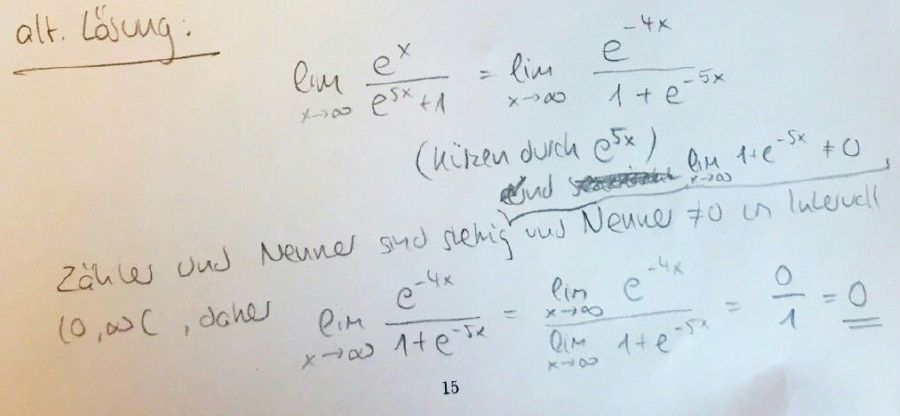 alt. Lösung:
lim x→∞ e^x / (e^5x + 1) = lim x→∞ e^-4x / (1 + e^-5x)
(Kürzen durch e^5x)
und lim x→∞ 1+e^-5x ≠ 0,
Zähler und Nenner sind stetig und Nenner ≠0 in Intervall
(0,∞(, daher lim x→∞ e^-4x / (1+e^-5x) = lim x→∞ e^-4x / lim x→∞ 1+e^-5x = 0/1 = 0
15